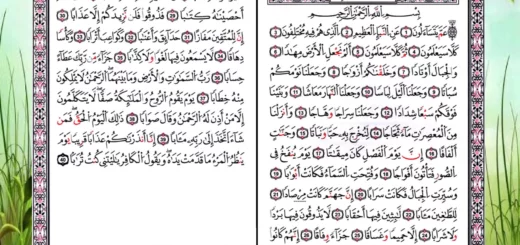 بِسْمِ اللَّهِ الرَّحْمَٰنِ الرَّحِيمِ
عَمَّ يَتَسَاءَلُونَ 1 عَنِ النَّبَإِ الْعَظِيمِ 2 الَّذِي هُمْ فِيهِ مُخْتَلِفُونَ 3
كَلَّا سَيَعْلَمُونَ 4 ثُمَّ كَلَّا سَيَعْلَمُونَ 5 أَلَمْ نَجْعَلِ الْأَرْضَ مِهَٰدًا 6
وَالْجِبَالَ أَوْتَادًا 7 وَخَلَقْنَٰكُمْ أَزْوَٰجًا 8 وَجَعَلْنَا نَوْمَكُمْ
سُبَاتًا 9 وَجَعَلْنَا اللَّيْلَ لِبَاسًا 10 وَجَعَلْنَا النَّهَارَ مَعَاشًا 11 وَبَنَيْنَا
فَوْقَكُمْ سَبْعًا شِدَادًا 12 وَجَعَلْنَا سِرَاجًا وَهَّاجًا 13 وَأَنزَلْنَا
مِنَ الْمُعْصِرَٰتِ مَاءً ثَجَّاجًا 14 لِّنُخْرِجَ بِهِ حَبًّا وَنَبَاتًا 15 وَجَنَّٰتٍ
أَلْفَافًا 16 إِنَّ يَوْمَ الْفَصْلِ كَانَ مِيقَٰتًا 17 يَوْمَ يُنفَخُ فِي
الصُّورِ فَتَأْتُونَ أَفْوَاجًا 18 وَفُتِحَتِ السَّمَاءُ فَكَانَتْ أَبْوَٰبًا 19
وَسُيِّرَتِ الْجِبَالُ فَكَانَتْ سَرَابًا 20 إِنَّ جَهَنَّمَ كَانَتْ مِرْصَادًا 21
لِّلطَّٰغِينَ مَـَٔابًا 22 لَّٰبِثِينَ فِيهَا أَحْقَابًا 23 لَّا يَذُوقُونَ فِيهَا بَرْدًا
وَلَا شَرَابًا 24 إِلَّا حَمِيمًا وَغَسَّاقًا 25 جَزَاءً وِفَاقًا 26 إِنَّهُمْ كَانُوا
أَحْصَيْنَٰهُ كِتَٰبًا 29 فَذُوقُوا فَلَن نَّزِيدَكُمْ إِلَّا عَذَابًا 30
إِنَّ لِلْمُتَّقِينَ مَفَازًا 31 حَدَائِقَ وَأَعْنَٰبًا 32 وَكَوَاعِبَ أَتْرَابًا 33 وَكَأْسًا
دِهَاقًا 34 لَّا يَسْمَعُونَ فِيهَا لَغْوًا وَلَا كِذَّٰبًا 35 جَزَاءً مِّن رَّبِّكَ عَطَاءً
حِسَابًا 36 رَّبِّ السَّمَٰوَٰتِ وَالْأَرْضِ وَمَا بَيْنَهُمَا الرَّحْمَٰنِ لَا يَمْلِكُونَ
مِنْهُ خِطَابًا 37 يَوْمَ يَقُومُ الرُّوحُ وَالْمَلَٰئِكَةُ صَفًّا لَّا يَتَكَلَّمُونَ
إِلَّا مَنْ أَذِنَ لَهُ الرَّحْمَٰنُ وَقَالَ صَوَابًا 38 ذَٰلِكَ الْيَوْمُ الْحَقُّ فَمَن
شَاءَ اتَّخَذَ إِلَىٰ رَبِّهِ مَـَٔابًا 39 إِنَّا أَنذَرْنَٰكُمْ عَذَابًا قَرِيبًا يَوْمَ
يَنظُرُ الْمَرْءُ مَا قَدَّمَتْ يَدَاهُ وَيَقُولُ الْكَافِرُ يَٰلَيْتَنِي كُنتُ تُرَٰبًا 40